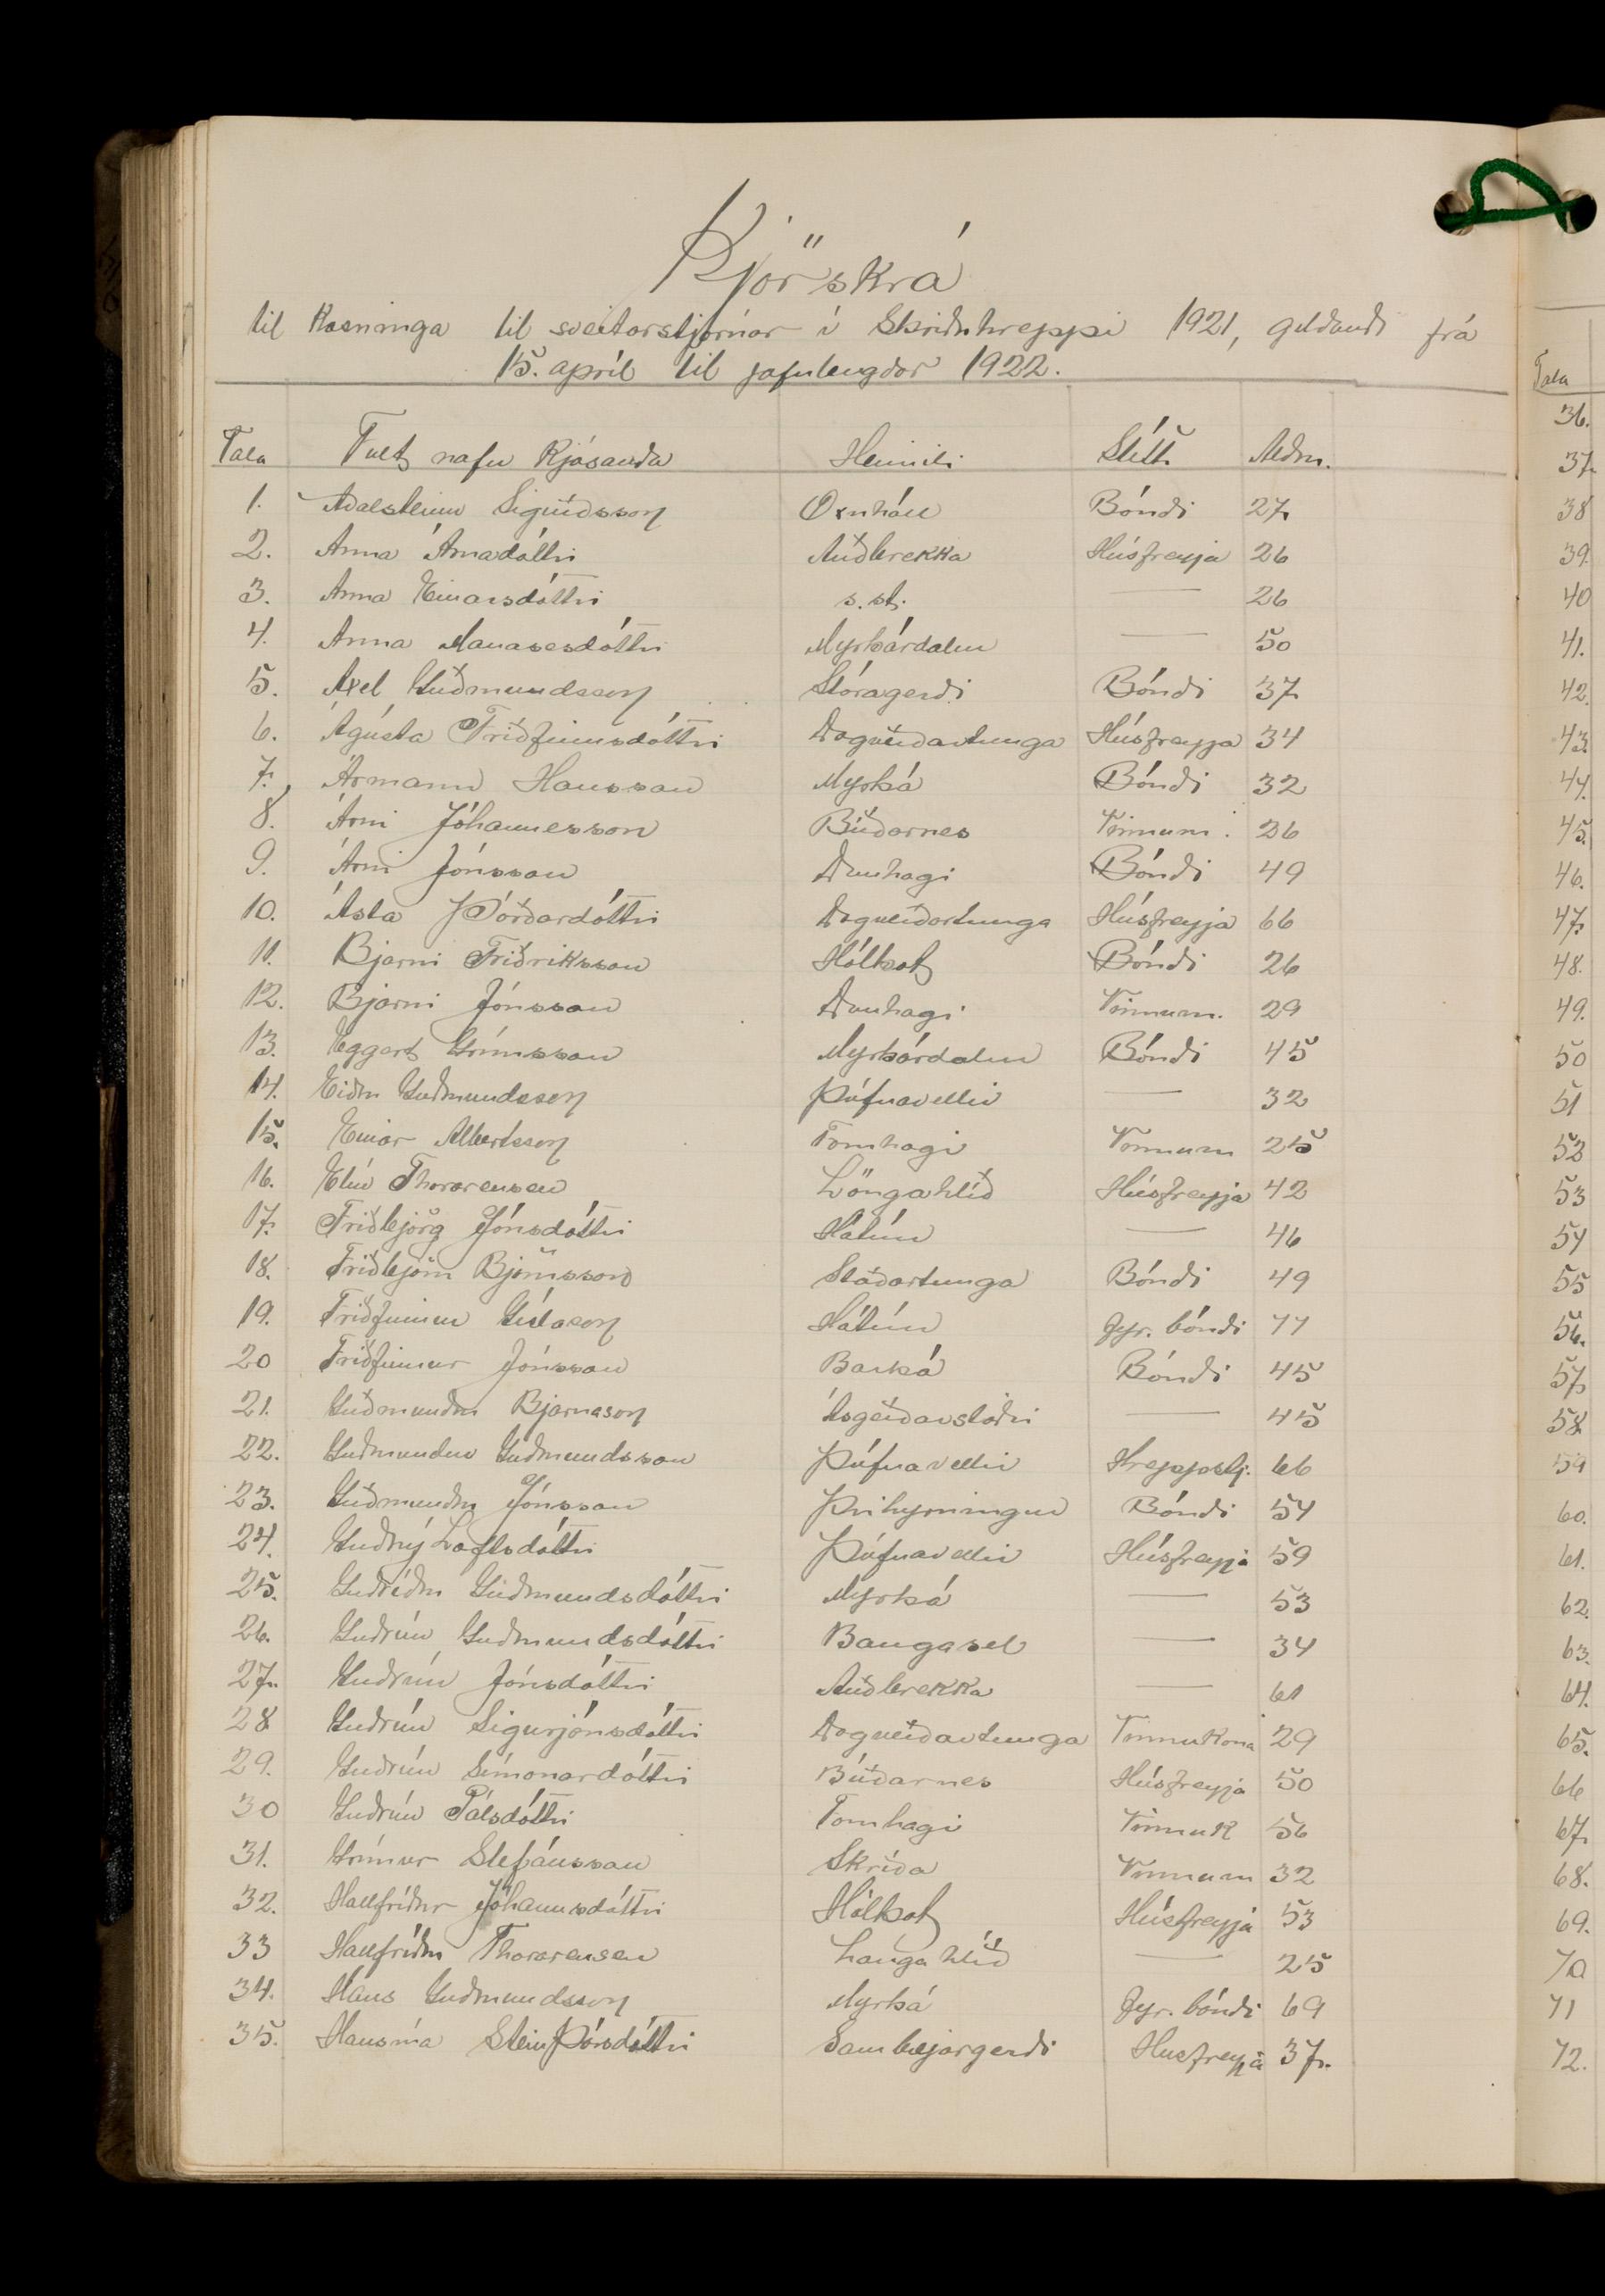 Kjörskrá
til kosninga til sveitarstjórnar í Skriðuhreppi 1921, gildandi frá
15. apríl til jafnlengdar 1922.
Tala Fult nafn kjósanda Heimili Stétt Aldur.
1. Aðalsteinn Sigurðsson Öxnhóll Bóndi 27
2. Anna Árnadóttir Auðbrekka Húsfreyja 26
3. Anna Einarsdóttir s. st. — 26
4. Anna Manasesdóttir Myrkárdalur — 50
5. Axel Guðmundsson Stóragerði Bóndi 37
6. Ágústa Friðfinnsdóttir Dagverðartunga Húsfreyja 34
7. Ármann Hansson Myrká Bóndi 32
8. Árni Jóhannesson Búðarnes Vinnum. 26
9. Árni Jónsson Dunhagi Bóndi 49
10. Ásta Þórðardóttir Dagverðartunga Húsfreyja 66
11. Bjarni Friðriksson Hólkot Bóndi 26
12. Bjarni Jónsson Dunhagi Vinnum. 29
13. Eggert Grímsson Myrkárdalur Bóndi 45
14. Eiður Guðmundsson Þúfnavellir — 32
15. Einar Albertsson Fornhagi Vinnum 25
16. Elín Thorarensen Lönguhlíð Húsfreyja 42
17. Friðbjörg Jónsdóttir Hátún — 46
18. Friðbjörn Björnsson Staðartunga Bóndi 49
19. Friðfinnur Gíslason Hátún Fyr. bóndi 77
20 Friðfinnur Jónsson Barká Bóndi 45
21. Guðmundur Bjarnason Ásgerðarstaðir — 45
22. Guðmundur Guðmundsson Þúfnavellir Hreppstj. 66
23. Guðmundur Jónsson Þríhyrningur Bóndi 54
24. Guðný Loftsdóttir Þúfnavellir Húsfreyja 59
25. Guðríður Guðmundsdóttir Myrká — 53
26. Guðrún Guðmundsdóttir Baugasel — 34
27. Guðrún Jónsdóttir Auðbrekka — 61
28 Guðrún Sigurjónsdóttir Dagverðartunga Vinnukona 29
29. Guðrún Símonardóttir Búðarnes Húsfreyja 50
30 Guðrún Pálsdóttir Fornhagi Vinnuk 56
31. Grímur Stefánsson Skriða Vinnum 32
32. Hallfríður Jóhannsdóttir Hólkot Húsfreyja 53
33 Hallfríður Thorarensen Langahlíð — 25
34. Hans Guðmundsson Myrká Fyr. bóndi 69
35. Hansína Steinþórsdóttir Sambejargerði Húsfreyja 37.
Tala
36.
37.
38
39.
40
41.
42.
43.
44.
45.
46.
47.
48.
49.
50
51
52
53
54
55
56.
57.
58.
59
60.
61.
62.
63.
64.
65.
66
67.
68.
69.
70
71
72.